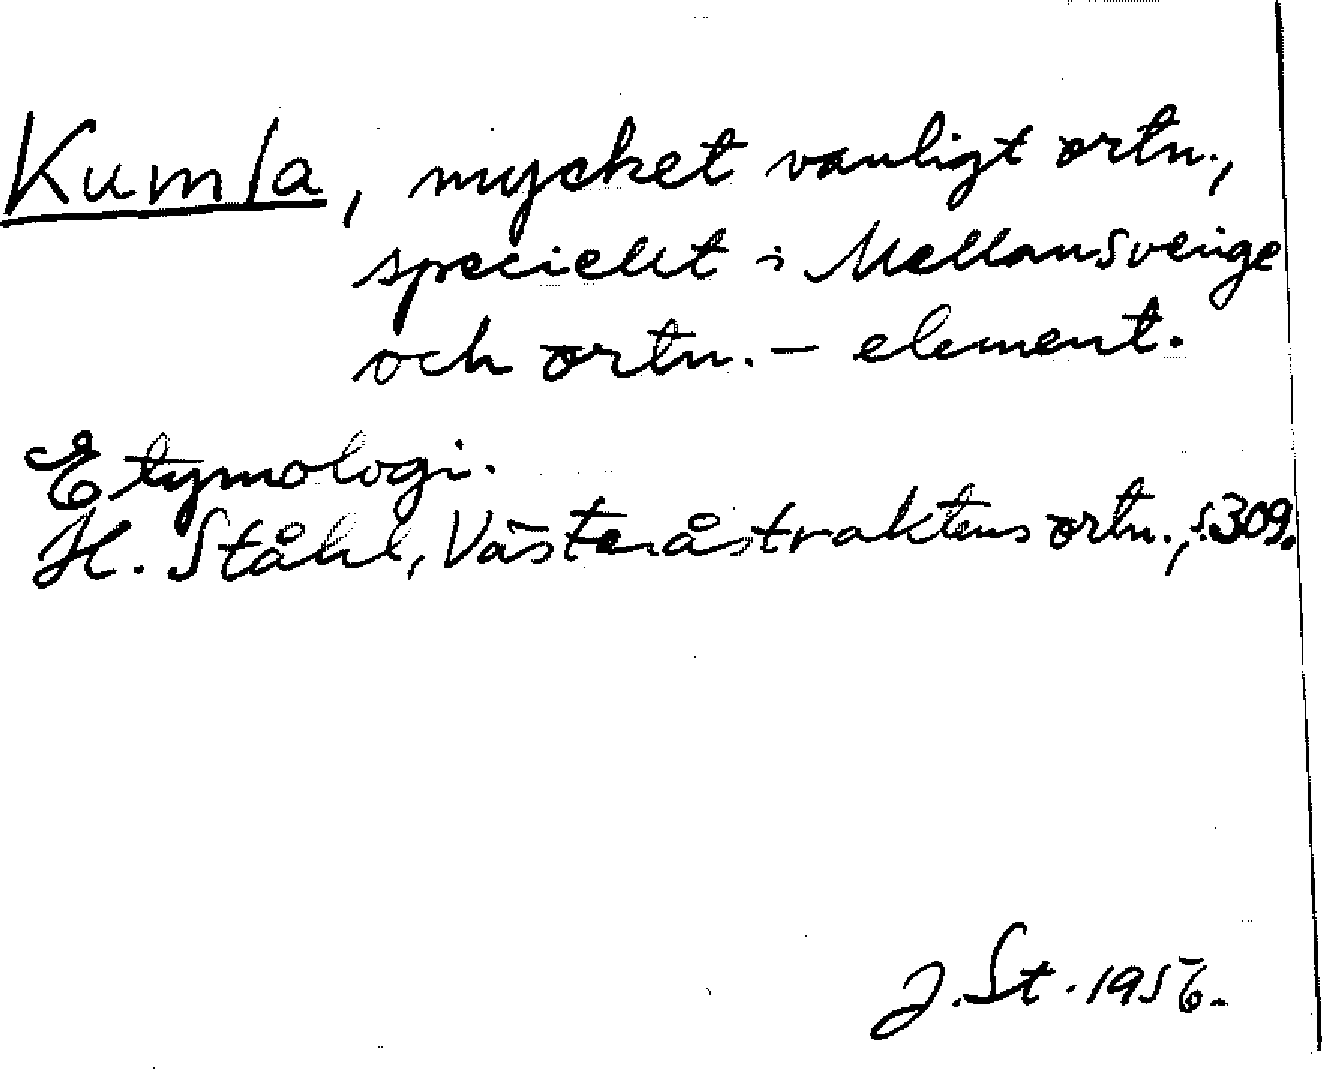 Kumla, mycket vanligt ortn.,
speciellt i Mellansverige
och ortn. - element.
Etymologi.
H. Ståhl, Västeråstraktens ortn., s. 309.
J. St. 1956.